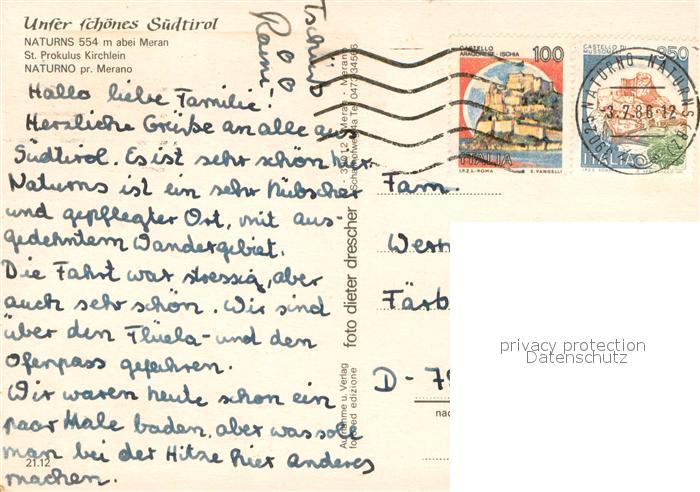 Unser schönes Südtirol
NATURNS 554 m abei Meran
St. Prokulus Kirchlein
NATURNO pr. Merano
Hallo liebe Familie!
Herzliche Grüße an alle aus
Südtirol. Es ist sehr schön hier.
Naturns ist ein sehr hübscher
und gepflegter Ort, mit aus-
gedehntem Wandergebiet.
Die Fahrt war stressig, aber
auch sehr schön. Wir sind
über den Flüela- und den
Ofenpass gefahren.
Wir waren heute schon ein
paar Male baden, aber was soll
man bei der Hitze hier anderes
machen.
21.12
Tschüß
foto dieter drescher
Aufnahme u. Verlag
39012 Meran - Merano
CASTELLO
ARAGONESE - ISCHIA
100
ITALIA
I.P.Z.S. - ROMA E. VANGELLI
CASTELLO DI
MUSSOMELI
250
ITALIA
NATURNO NATURNS
-3.7.86.12
Fam.
Wern
Färb
D - 79
privacy protection
Datenschutz